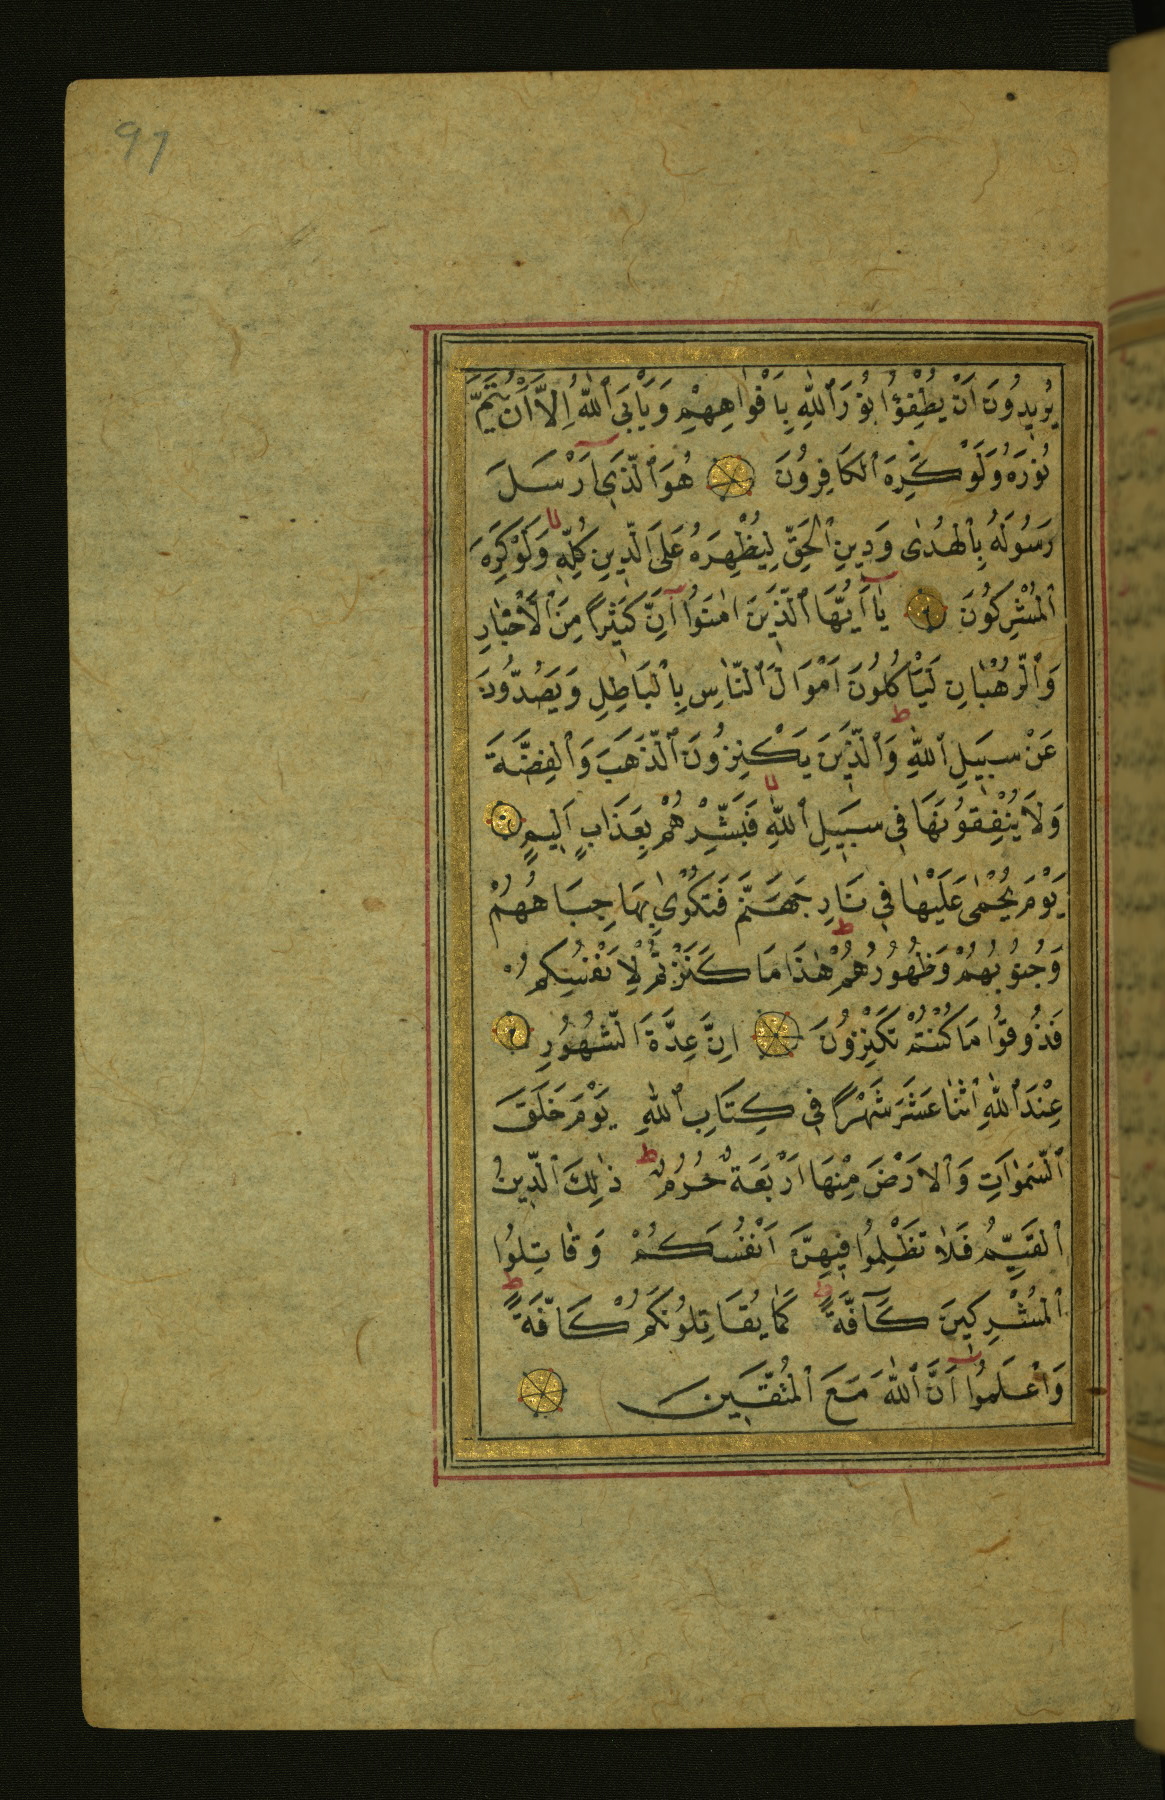 97
يُرِيدُونَ اَنْ يُطْفِؤُا نُورَ ٱللّٰهِ بِاَفْوَاهِهِمْ وَيَاْبَى ٱللّٰهُ اِلَّا اَنْ يُتِمَّ
نُورَهُ وَلَوْ كَرِهَ ٱلكَافِرُونَ هُوَ ٱلَّذِى اَرْسَلَ
رَسُولَهُ بِٱلْهُدٰى وَدِينِ ٱلْحَقِّ لِيُظْهِرَهُ عَلَى ٱلدِّينِ كُلِّهِ وَلَوْ كَرِهَ
ٱلْمُشْرِكُونَ يَا اَيُّهَا ٱلَّذِينَ اٰمَنُوا اِنَّ كَثِيرًا مِنَ ٱلْاَحْبَارِ
وَٱلرُّهْبَانِ لَيَاْكُلُونَ اَمْوَالَ ٱلنَّاسِ بِٱلْبَاطِلِ وَيَصُدُّونَ
عَنْ سَبِيلِ ٱللّٰهِ ط وَٱلَّذِينَ يَكْنِزُونَ ٱلذَّهَبَ وَٱلْفِضَّةَ
وَلَا يُنْفِقُونَهَا فِى سَبِيلِ ٱللّٰهِ لا فَبَشِّرْهُمْ بِعَذَابٍ اَلِيمٍ
يَوْمَ يُحْمٰى عَلَيْهَا فِى نَارِ جَهَنَّمَ فَتُكْوٰى بِهَا جِبَاهُهُمْ
وَجُنُوبُهُمْ وَظُهُورُهُمْ ط هٰذَا مَا كَنَزْتُمْ لِاَنْفُسِكُمْ
فَذُوقُوا مَا كُنْتُمْ تَكْنِزُونَ اِنَّ عِدَّةَ ٱلشُّهُورِ
عِنْدَ ٱللّٰهِ ٱثْنَا عَشَرَ شَهْرًا فِى كِتَابِ ٱللّٰهِ يَوْمَ خَلَقَ
ٱلسَّمٰوَاتِ وَٱلْاَرْضَ مِنْهَا اَرْبَعَةٌ حُرُمٌ ط ذٰلِكَ ٱلدِّينُ
ٱلْقَيِّمُ فَلَا تَظْلِمُوا فِيهِنَّ اَنْفُسَكُمْ وَقَاتِلُوا
ٱلْمُشْرِكِينَ كَآفَّةً ط كَمَا يُقَاتِلُونَكُمْ كَافَّةً ط
وَاعْلَمُوا اَنَّ ٱللّٰهَ مَعَ ٱلْمُتَّقِينَ